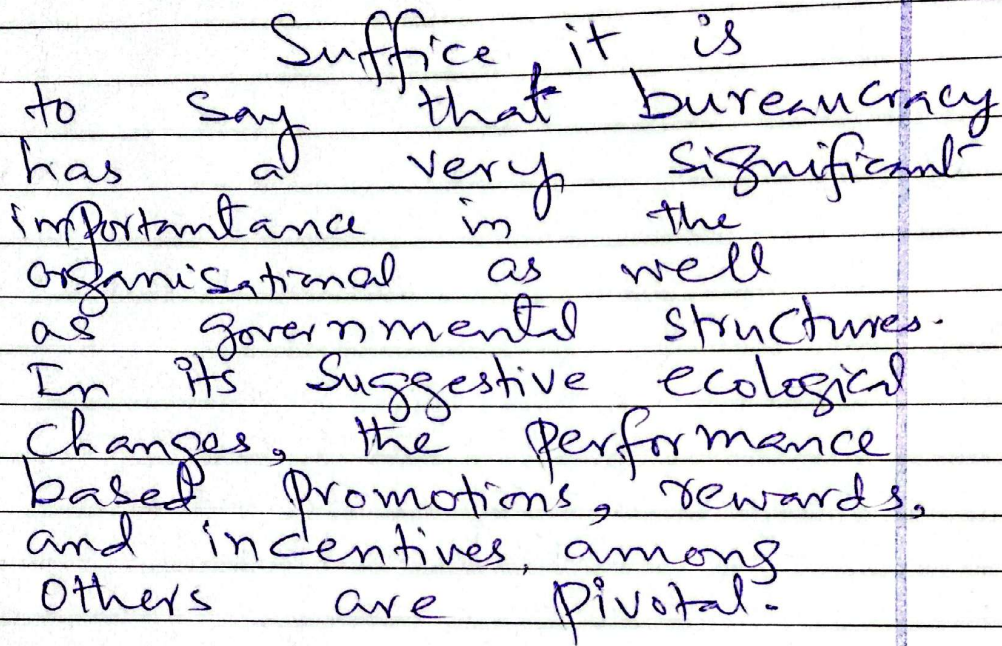 Suffice it is
to say that bureaucracy
has a very significant
importantance in the
organisational as well
as governmental structures.
In its suggestive ecological
changes, the performance
based promotions, rewards,
and incentives, among
others are pivotal.